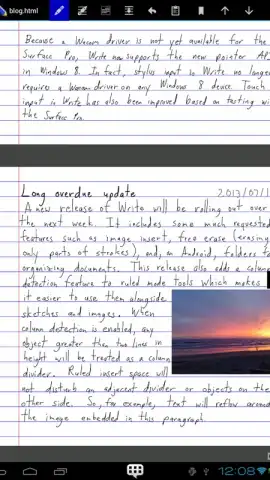 blog.html
Because a Wacom driver is not yet available for the
Surface Pro, Write now supports the new pointer AP
in Windows 8. In fact, stylus input to Write no longer
requires a Wacom driver on any Windows 8 device. Touch
input in Write has also been improved based on testing wi
the Surface Pro.
Long overdue update
2013/07/1
A new release of Write will be rolling out over
the next week. It includes some much requested
features such as image insert, free erase (erasing
only parts of strokes), and, on Android, folders fo
organizing documents. This release also adds a column
detection feature to ruled mode tools which makes
it easier to use them alongside
sketches and images. When
column detection is enabled, any
object greater than two lines in
height will be treated as a column
divider. Ruled insert space will
not disturb an adjacent divider or objects on the
other side. So, for example, text will reflow around
the image embedded in this paragraph.
12:08